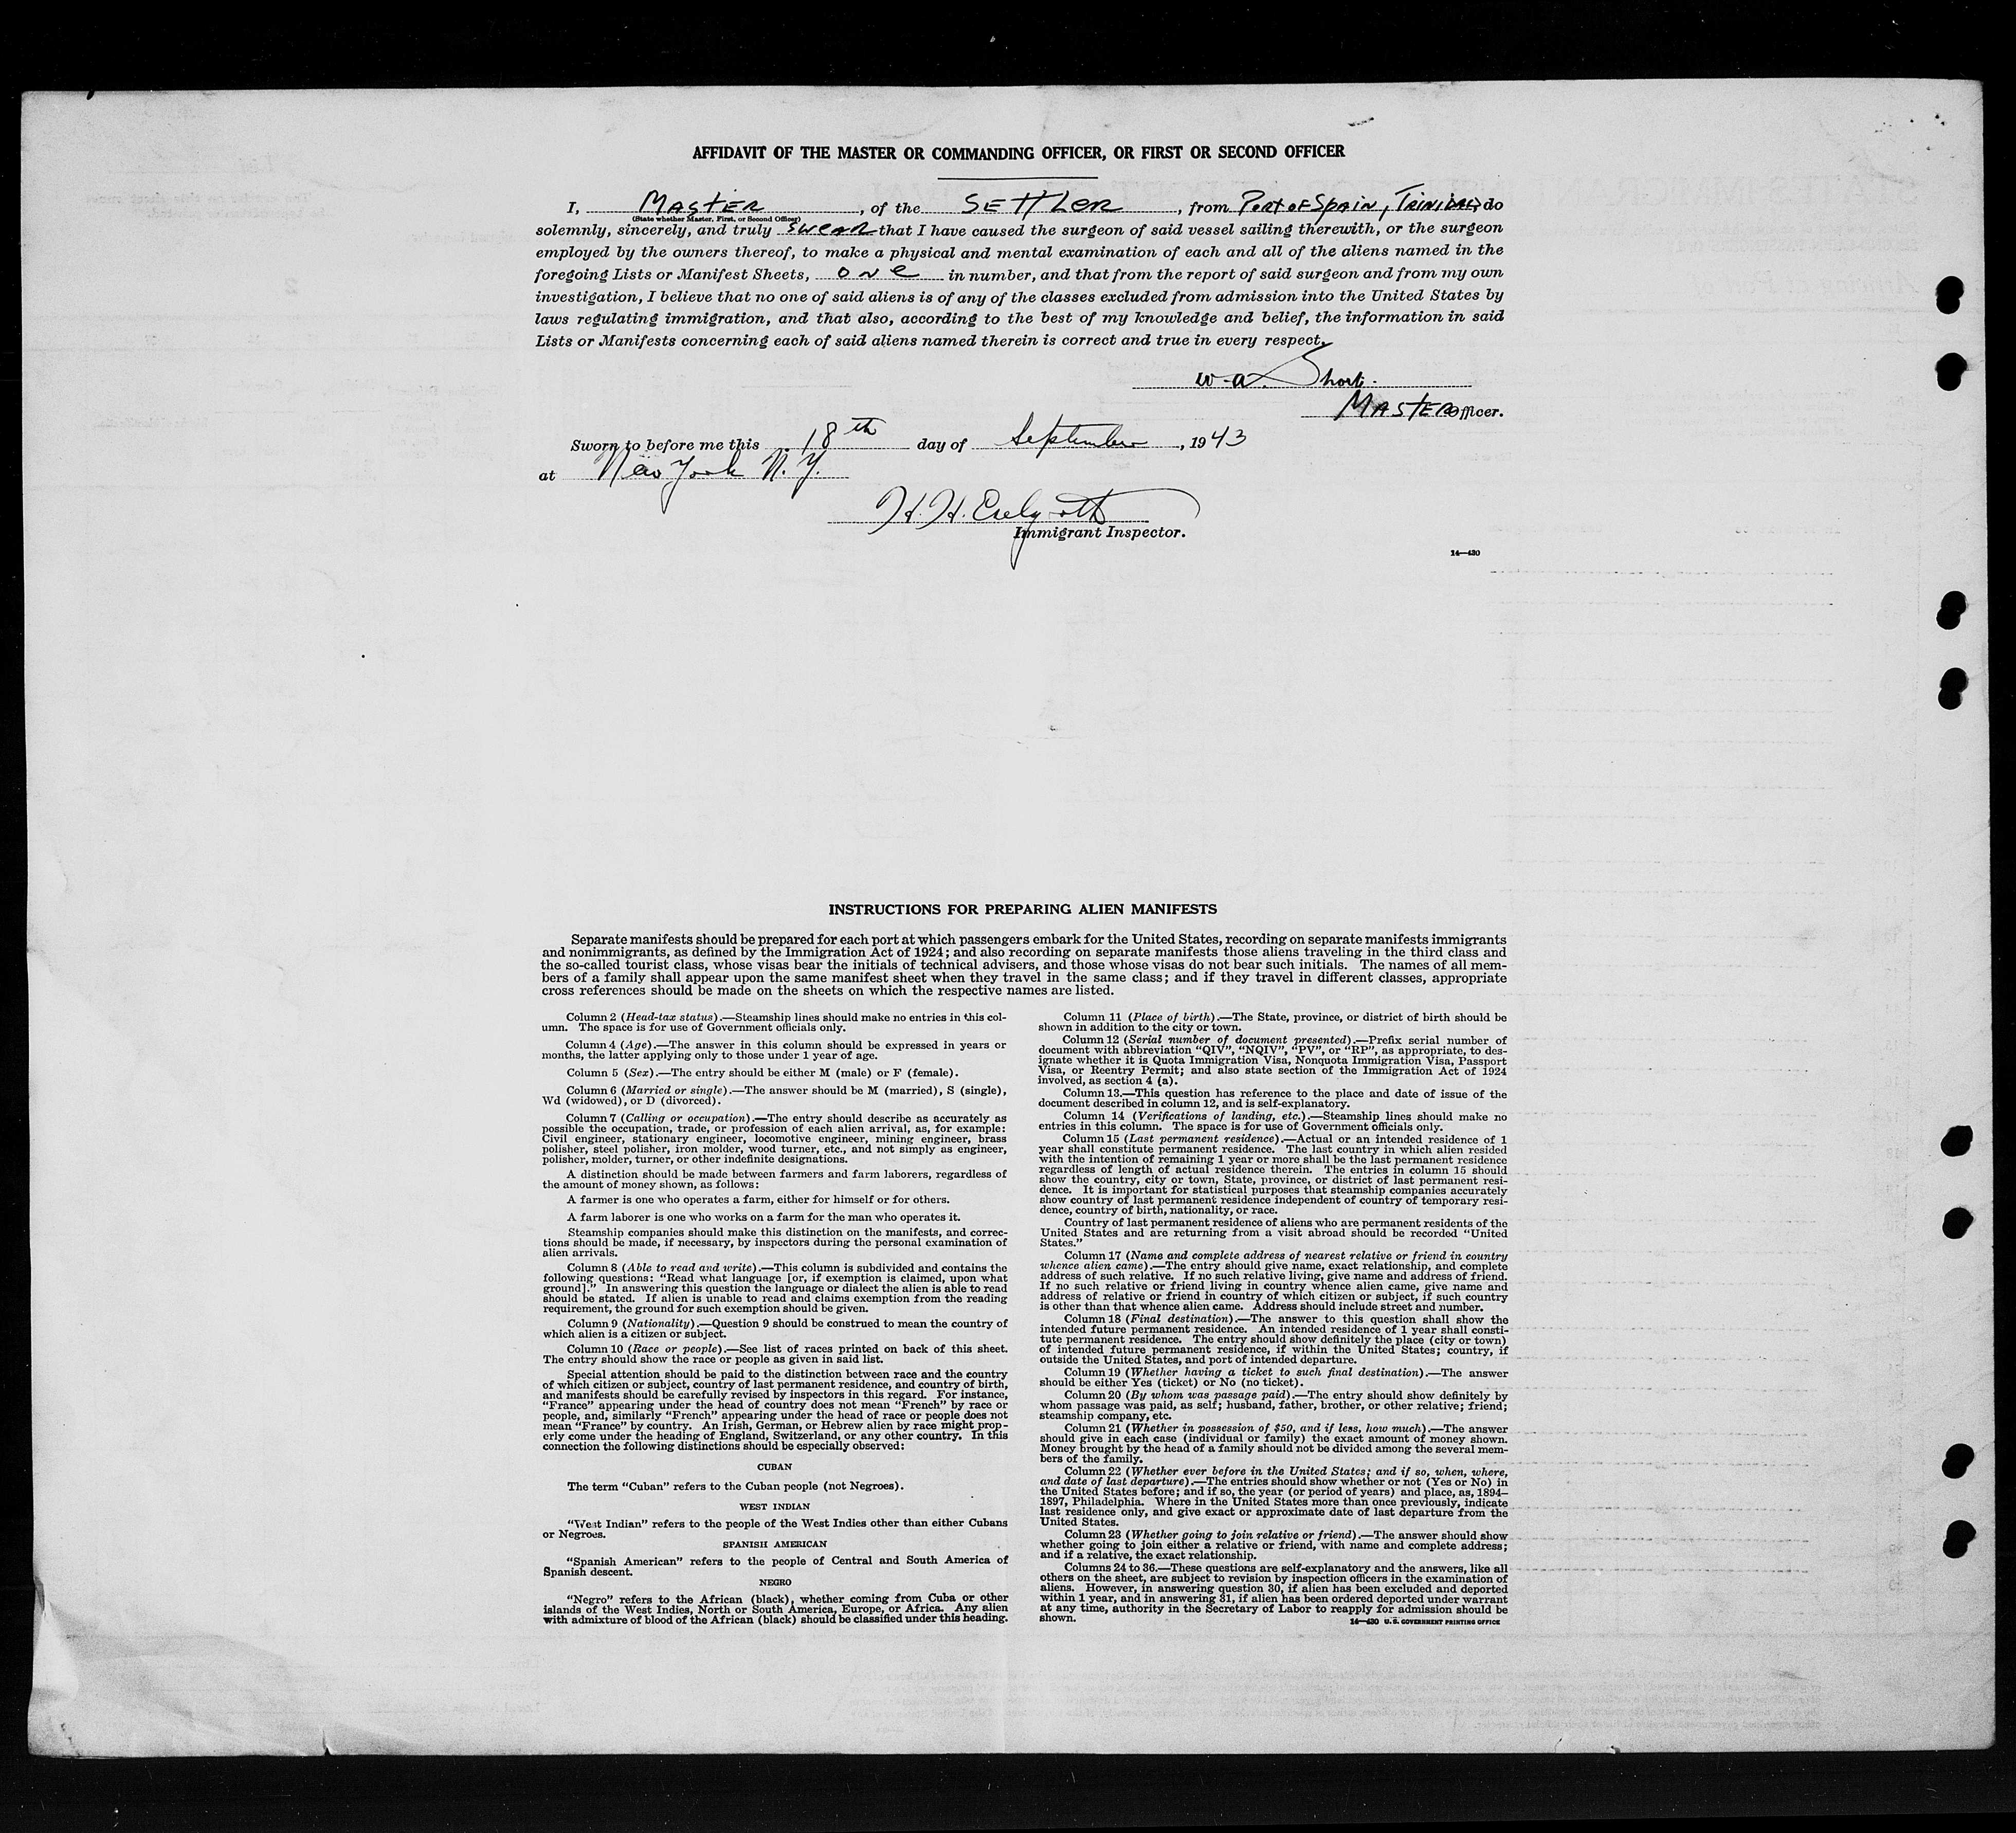 AFFIDAVIT OF THE MASTER OR COMMANDING OFFICER, OR FIRST OR SECOND OFFICER
I, MASTER, of the SETTLER, from PORT OF SPAIN, TRINIDAD, do
(State whether Master, First, or Second Officer)
solemnly, sincerely, and truly swear that I have caused the surgeon of said vessel sailing therewith, or the surgeon
employed by the owners thereof, to make a physical and mental examination of each and all of the aliens named in the
foregoing Lists or Manifest Sheets, one in number, and that from the report of said surgeon and from my own
investigation, I believe that no one of said aliens is of any of the classes excluded from admission into the United States by
laws regulating immigration, and that also, according to the best of my knowledge and belief, the information in said
Lists or Manifests concerning each of said aliens named therein is correct and true in every respect.
W. A. Short.
MASTER Officer.
Sworn to before me this 18th day of September, 1943
at New York N. Y.
H. H.
Immigrant Inspector.
14—430
INSTRUCTIONS FOR PREPARING ALIEN MANIFESTS
Separate manifests should be prepared for each port at which passengers embark for the United States, recording on separate manifests immigrants
and nonimmigrants, as defined by the Immigration Act of 1924; and also recording on separate manifests those aliens traveling in the third class and
the so-called tourist class, whose visas bear the initials of technical advisers, and those whose visas do not bear such initials. The names of all mem-
bers of a family shall appear upon the same manifest sheet when they travel in the same class; and if they travel in different classes, appropriate
cross references should be made on the sheets on which the respective names are listed.
Column 2 (Head-tax status).—Steamship lines should make no entries in this col-
umn. The space is for use of Government officials only.
Column 4 (Age).—The answer in this column should be expressed in years or
months, the latter applying only to those under 1 year of age.
Column 5 (Sex).—The entry should be either M (male) or F (female).
Column 6 (Married or single).—The answer should be M (married), S (single),
Wd (widowed), or D (divorced).
Column 7 (Calling or occupation).—The entry should describe as accurately as
possible the occupation, trade, or profession of each alien arrival, as, for example:
Civil engineer, stationary engineer, locomotive engineer, mining engineer, brass
polisher, steel polisher, iron molder, wood turner, etc., and not simply as engineer,
polisher, molder, turner, or other indefinite designations.
A distinction should be made between farmers and farm laborers, regardless of
the amount of money shown, as follows:
A farmer is one who operates a farm, either for himself or for others.
A farm laborer is one who works on a farm for the man who operates it.
Steamship companies should make this distinction on the manifests, and correc-
tions should be made, if necessary, by inspectors during the personal examination of
alien arrivals.
Column 8 (Able to read and write).—This column is subdivided and contains the
following questions: “Read what language [or, if exemption is claimed, upon what
ground].” In answering this question the language or dialect the alien is able to read
should be stated. If alien is unable to read and claims exemption from the reading
requirement, the ground for such exemption should be given.
Column 9 (Nationality).—Question 9 should be construed to mean the country of
which alien is a citizen or subject.
Column 10 (Race or people).—See list of races printed on back of this sheet.
The entry should show the race or people as given in said list.
Special attention should be paid to the distinction between race and the country
of which citizen or subject, country of last permanent residence, and country of birth,
and manifests should be carefully revised by inspectors in this regard. For instance,
“France” appearing under the head of country does not mean “French” by race or
people, and, similarly “French” appearing under the head of race or people does not
mean “France” by country. An Irish, German, or Hebrew alien by race might prop-
erly come under the heading of England, Switzerland, or any other country. In this
connection the following distinctions should be especially observed:
CUBAN
The term “Cuban” refers to the Cuban people (not Negroes).
WEST INDIAN
“West Indian” refers to the people of the West Indies other than either Cubans
or Negroes.
SPANISH AMERICAN
“Spanish American” refers to the people of Central and South America of
Spanish descent.
NEGRO
“Negro” refers to the African (black), whether coming from Cuba or other
islands of the West Indies, North or South America, Europe, or Africa. Any alien
with admixture of blood of the African (black) should be classified under this heading.
Column 11 (Place of birth).—The State, province, or district of birth should be
shown in addition to the city or town.
Column 12 (Serial number of document presented).—Prefix serial number of
document with abbreviation “QIV”, “NQIV”, “PV”, or “RP”, as appropriate, to des-
ignate whether it is Quota Immigration Visa, Nonquota Immigration Visa, Passport
Visa, or Reentry Permit; and also state section of the Immigration Act of 1924
involved, as section 4 (a).
Column 13.—This question has reference to the place and date of issue of the
document described in column 12, and is self-explanatory.
Column 14 (Verifications of landing, etc.).—Steamship lines should make no
entries in this column. The space is for use of Government officials only.
Column 15 (Last permanent residence).—Actual or an intended residence of 1
year shall constitute permanent residence. The last country in which alien resided
with the intention of remaining 1 year or more shall be the last permanent residence
regardless of length of actual residence therein. The entries in column 15 should
show the country, city or town, State, province, or district of last permanent resi-
dence. It is important for statistical purposes that steamship companies accurately
show country of last permanent residence independent of country of temporary resi-
dence, country of birth, nationality, or race.
Country of last permanent residence of aliens who are permanent residents of the
United States and are returning from a visit abroad should be recorded “United
States.”
Column 17 (Name and complete address of nearest relative or friend in country
whence alien came).—The entry should give name, exact relationship, and complete
address of such relative. If no such relative living, give name and address of friend.
If no such relative or friend living in country whence alien came, give name and
address of relative or friend in country of which citizen or subject, if such country
is other than that whence alien came. Address should include street and number.
Column 18 (Final destination).—The answer to this question shall show the
intended future permanent residence. An intended residence of 1 year shall consti-
tute permanent residence. The entry should show definitely the place (city or town)
of intended future permanent residence, if within the United States; country, if
outside the United States, and port of intended departure.
Column 19 (Whether having a ticket to such final destination).—The answer
should be either Yes (ticket) or No (no ticket).
Column 20 (By whom was passage paid).—The entry should show definitely by
whom passage was paid, as self; husband, father, brother, or other relative; friend;
steamship company, etc.
Column 21 (Whether in possession of $50, and if less, how much).—The answer
should give in each case (individual or family) the exact amount of money shown.
Money brought by the head of a family should not be divided among the several mem-
bers of the family.
Column 22 (Whether ever before in the United States; and if so, when, where,
and date of last departure).—The entries should show whether or not (Yes or No) in
the United States before; and if so, the year (or period of years) and place, as, 1894–
1897, Philadelphia. Where in the United States more than once previously, indicate
last residence only, and give exact or approximate date of last departure from the
United States.
Column 23 (Whether going to join relative or friend).—The answer should show
whether going to join either a relative or friend, with name and complete address;
and if a relative, the exact relationship.
Columns 24 to 36.—These questions are self-explanatory and the answers, like all
others on the sheet, are subject to revision by inspection officers in the examination of
aliens. However, in answering question 30, if alien has been excluded and deported
within 1 year, and in answering 31, if alien has been ordered deported under warrant
at any time, authority in the Secretary of Labor to reapply for admission should be
shown.
14—430 U. S. GOVERNMENT PRINTING OFFICE